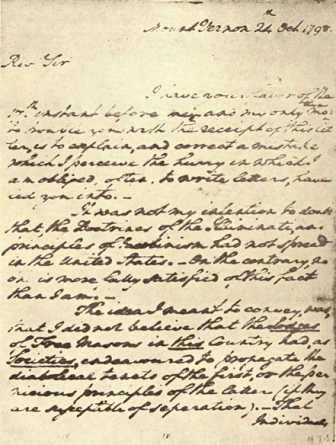 Mount Vernon 24th Oct. 1798.
Revd Sir
I have your favor of the
17th instant before me; and my only
to trouble you with the receipt of this let-
ter, is to explain, and correct a mistake
which I perceive the hurry in which I
am obliged, often, to write letters, have
led you into.—
It was not my intention to doubt
that the Doctrines of the Illuminati, and
principles of Jacobinism had not spread
in the United States.— On the contrary, no
one is more fully satisfied of this fact
than I am.—
The idea I meant to convey, was,
that I did not believe that the Lodges
of Free Masons in this Country had, as
Societies, endeavoured to propagate the
diabolical tenets of the first, or the per-
nicious principles of the latter (if they
are susceptible of seperation).— That
Individuals